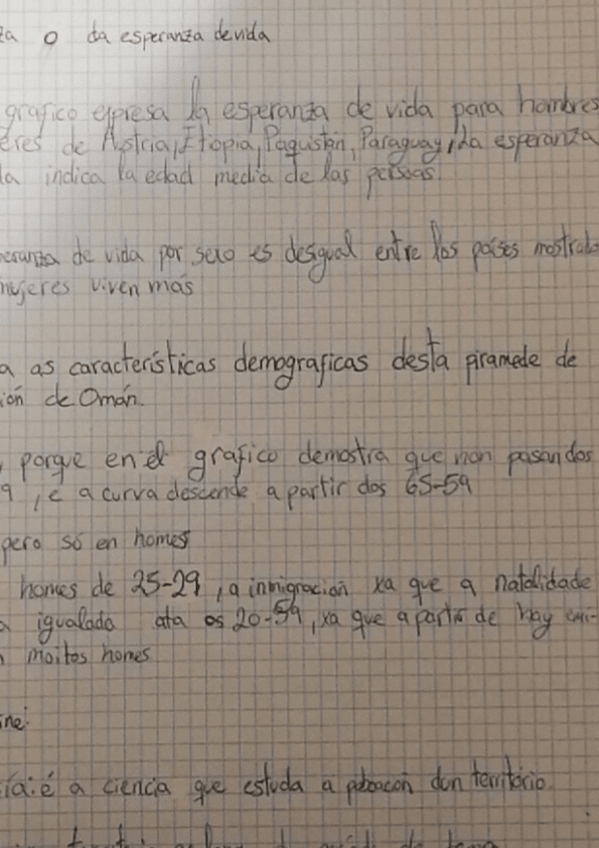 za o da esperanza de vida
grafico expresa la esperanza de vida para hombres
eres de Austria, Etiopia, Paquistán, Paraguay, da esperanza
da indica la edad media de las persoas.
eranza de vida por sexo es desigual entre los países mostrados
mujeres viven más
a as características demograficas desta piramede de
ión de Omán.
, porque en el grafico demostra que non pasan dos
9, e a curva descende a partir dos 65-59
pero só en homes
homes de 25-29, a inmigración xa que a natalidade
a igualada ata os 20-59, xa que a partir de hay
moitos homes
ine:
ía: é a ciencia que estuda a poboacón dun territorio